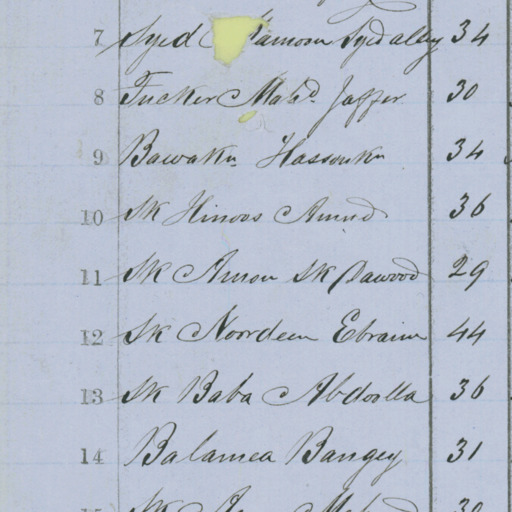 7 Syed Tyed alley 34
8 Fucker Mahd Jaffer 30
9 Bawakn Hassonkn 34
10 SK Hinoos Amud 36
11 SK Amon SK Dawood 29
12 SK Norrdeen Ebraim 44
13 SK Baba Abdoolla 36
14 Balamea Bangey 31